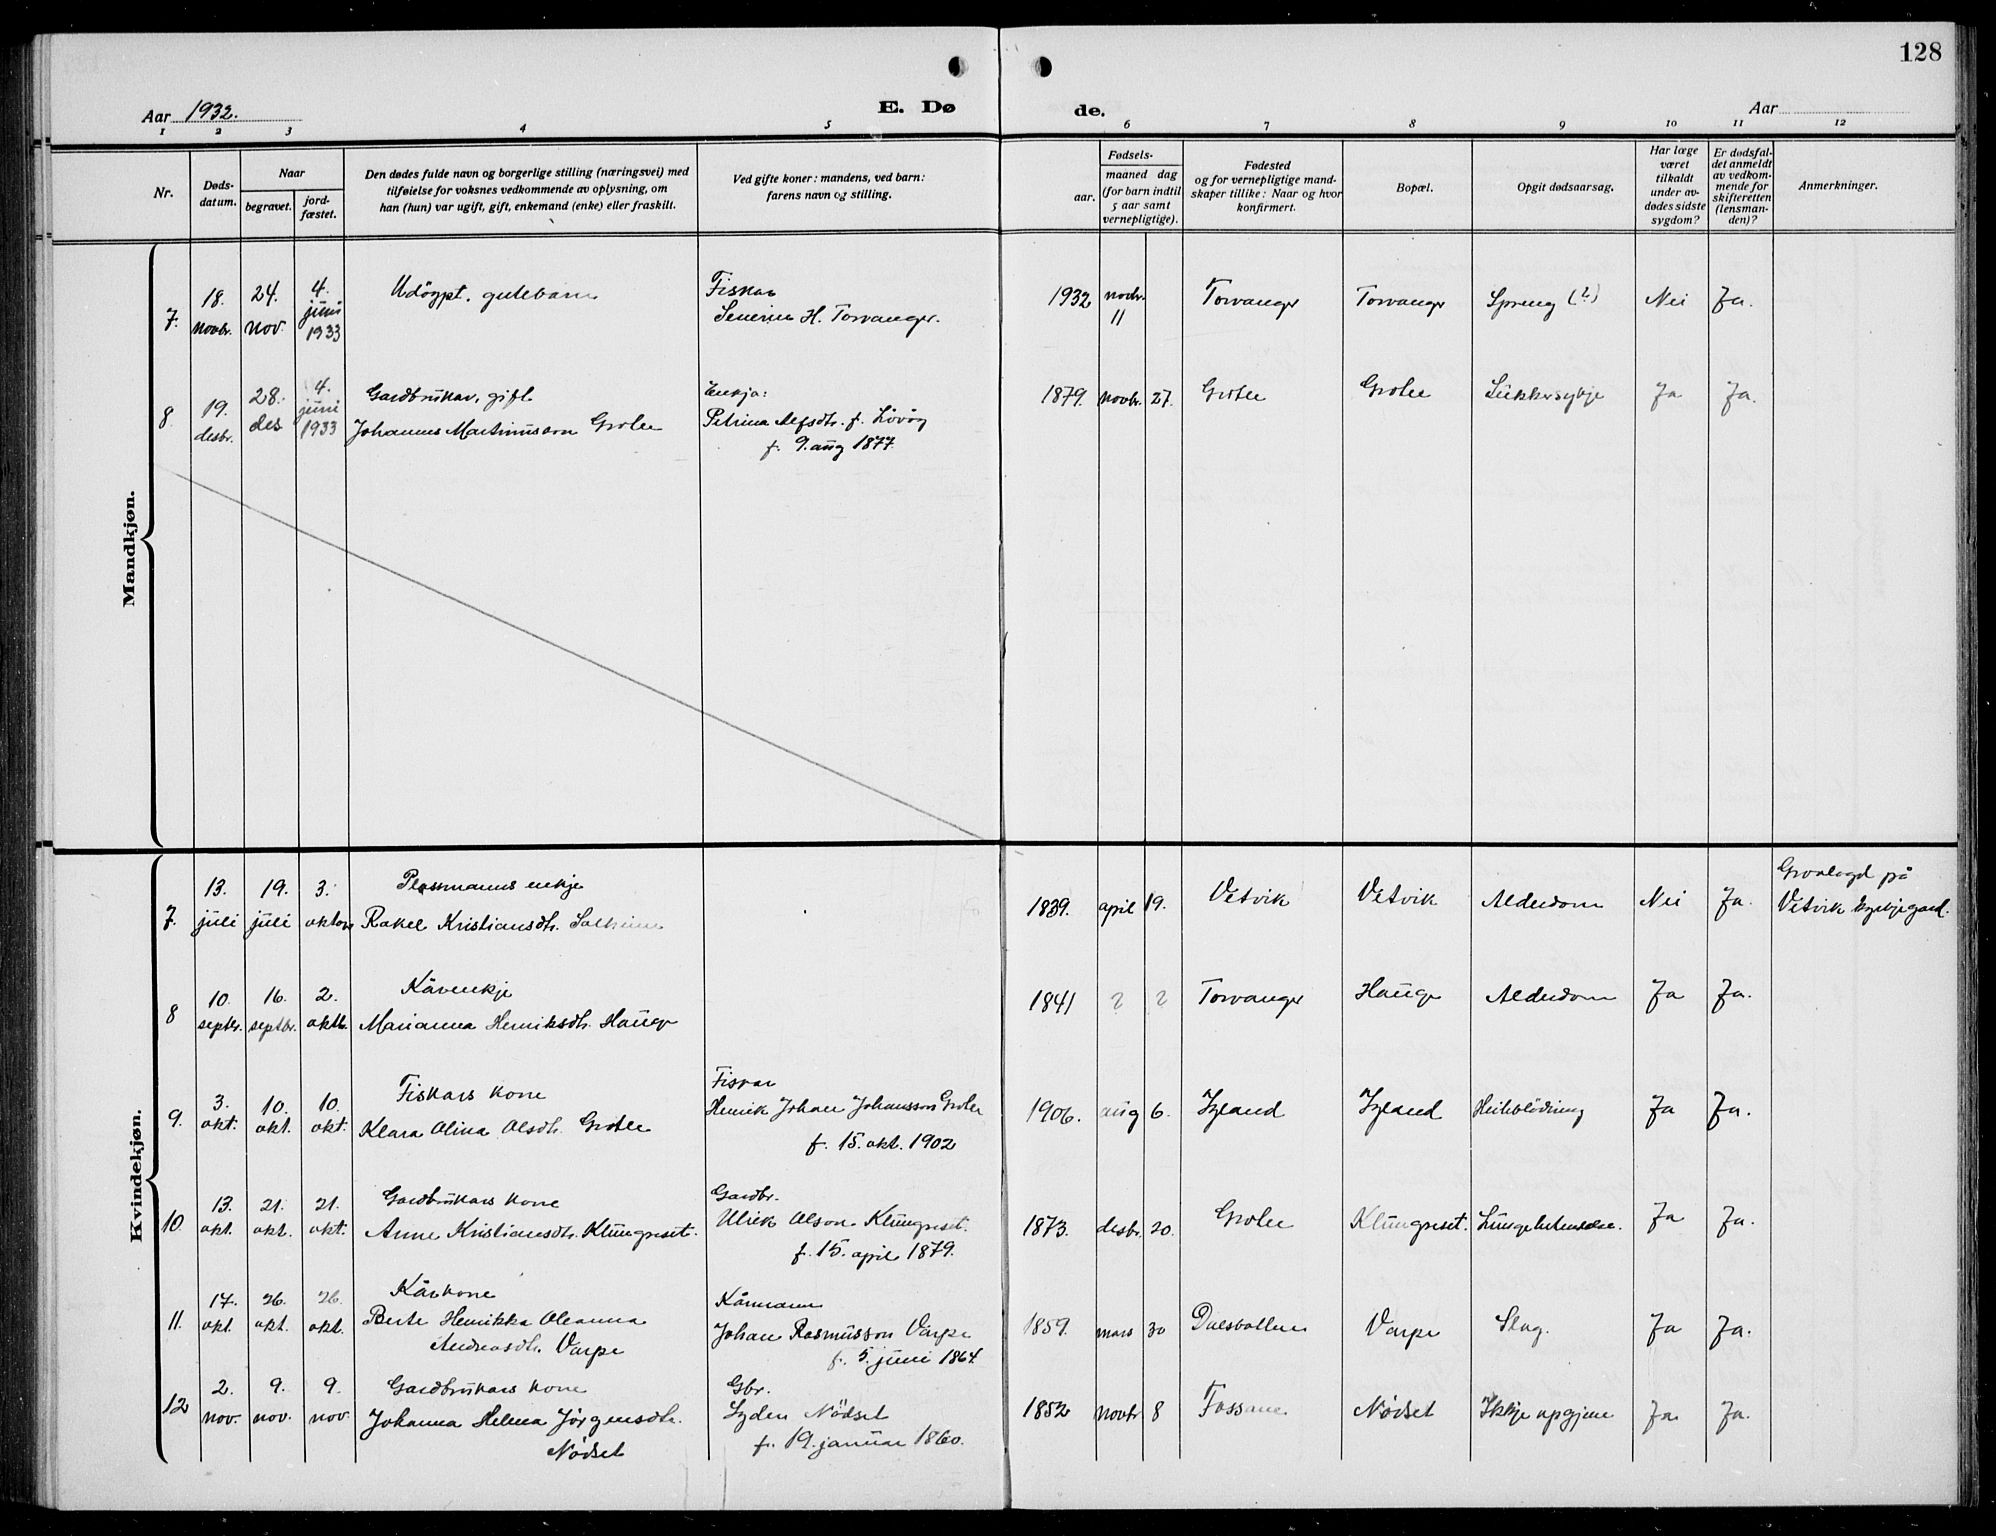 128
Aar 1932.
E. Dø de.
Aar
1 2 3 4 5 6 7 8 9 10 11 12
Nr.
Døds-
datum.
Naar
begravet.
jord-
fæstet.
Den dødes fulde navn og borgerlige stilling (næringsvei) med
tilføielse for voksnes vedkommende av oplysning, om
han (hun) var ugift, gift, enkemand (enke) eller fraskilt.
Ved gifte koner: mandens, ved barn:
farens navn og stilling.
Fødsels-
aar.
maaned dag
(for barn indtil
5 aar samt
vernepligtige).
Fødested
og for vernepligtige mand-
skaper tillike: Naar og hvor
konfirmert.
Bopæl.
Opgit dødsaarsag.
Har læge
været
tilkaldt
under av-
dødes sidste
sygdom?
Er dødsfal-
det anmeldt
av vedkom-
mende for
skifteretten
(lensman-
den)?
Anmerkninger.
Mandkjøn.
7. 18. novbr. 24. nov. 4. juni 1933 Udöypt. gutebarn
Fiskar
Severin H. Torvanger.
1932 novbr. 11 Torvanger Torvanger Spreng (?) Nei Ja.
8. 19. desbr. 28. des 4. juni 1933 Gardbrukar, gift
Johannes Martinusson Grotle
Enkja:
Petrina Alfsdtr. f. Lövöy
f. 9. aug 1877.
1879. novbr. 27. Grotle Grotle Sukkersykje Ja Ja.
Kvindekjøn.
7. 13. juli 19. juli 3. oktbr Plassmanns enkje
Rakel Kristiansdtr.
1839. april 19. Vetvik Vetvik Alderdom Nei Ja.
Gravlagd på
Vetvik kyrkjegard.
8 10. septbr. 16. septbr. 2. oktb. Kårenkje
Marianna Henriksdtr. Hauge
1841 ? ? Torvanger Hauge Alderdom Ja Ja.
9. 3. okt. 10. okt. 10. okt. Fiskars kone
Klara Olina Olsdtr. Grotle
Fiskar
Henrik Johan Johansson Grotle
f. 15. okt. 1902
1906. aug 6. Iyland Iyland Heileblödning Ja Ja.
10. 13. okt. 21. okt. 21. okt. Gardbrukars kone
Anne Kristiansdtr. Klungreset.
Gardbr.
Ulrik Olson Klungreset.
f. 15. april 1879.
1873. desbr. 20. Grotle Klungreset. Ja Ja.
11. 17. okt. 26. okt. 26. okt. Kårkone
Berte Henrikka Oleanna
Andreasdtr. Varpe
Kårmann
Johan Rasmusson Varpe
f. 5. juni 1864.
1859. mars 30 Dalsbotten Varpe Slag. Ja Ja.
12 2. nov. 9. nov. 9. nov. Gardbrukars kone
Johanna Helena Jörgensdtr.
Nödset
Gbr.
Nödset
f. 19. januar 1860.
1852 novbr 8 Fossane Nödset Ikkje opgjeve Ja. Ja.